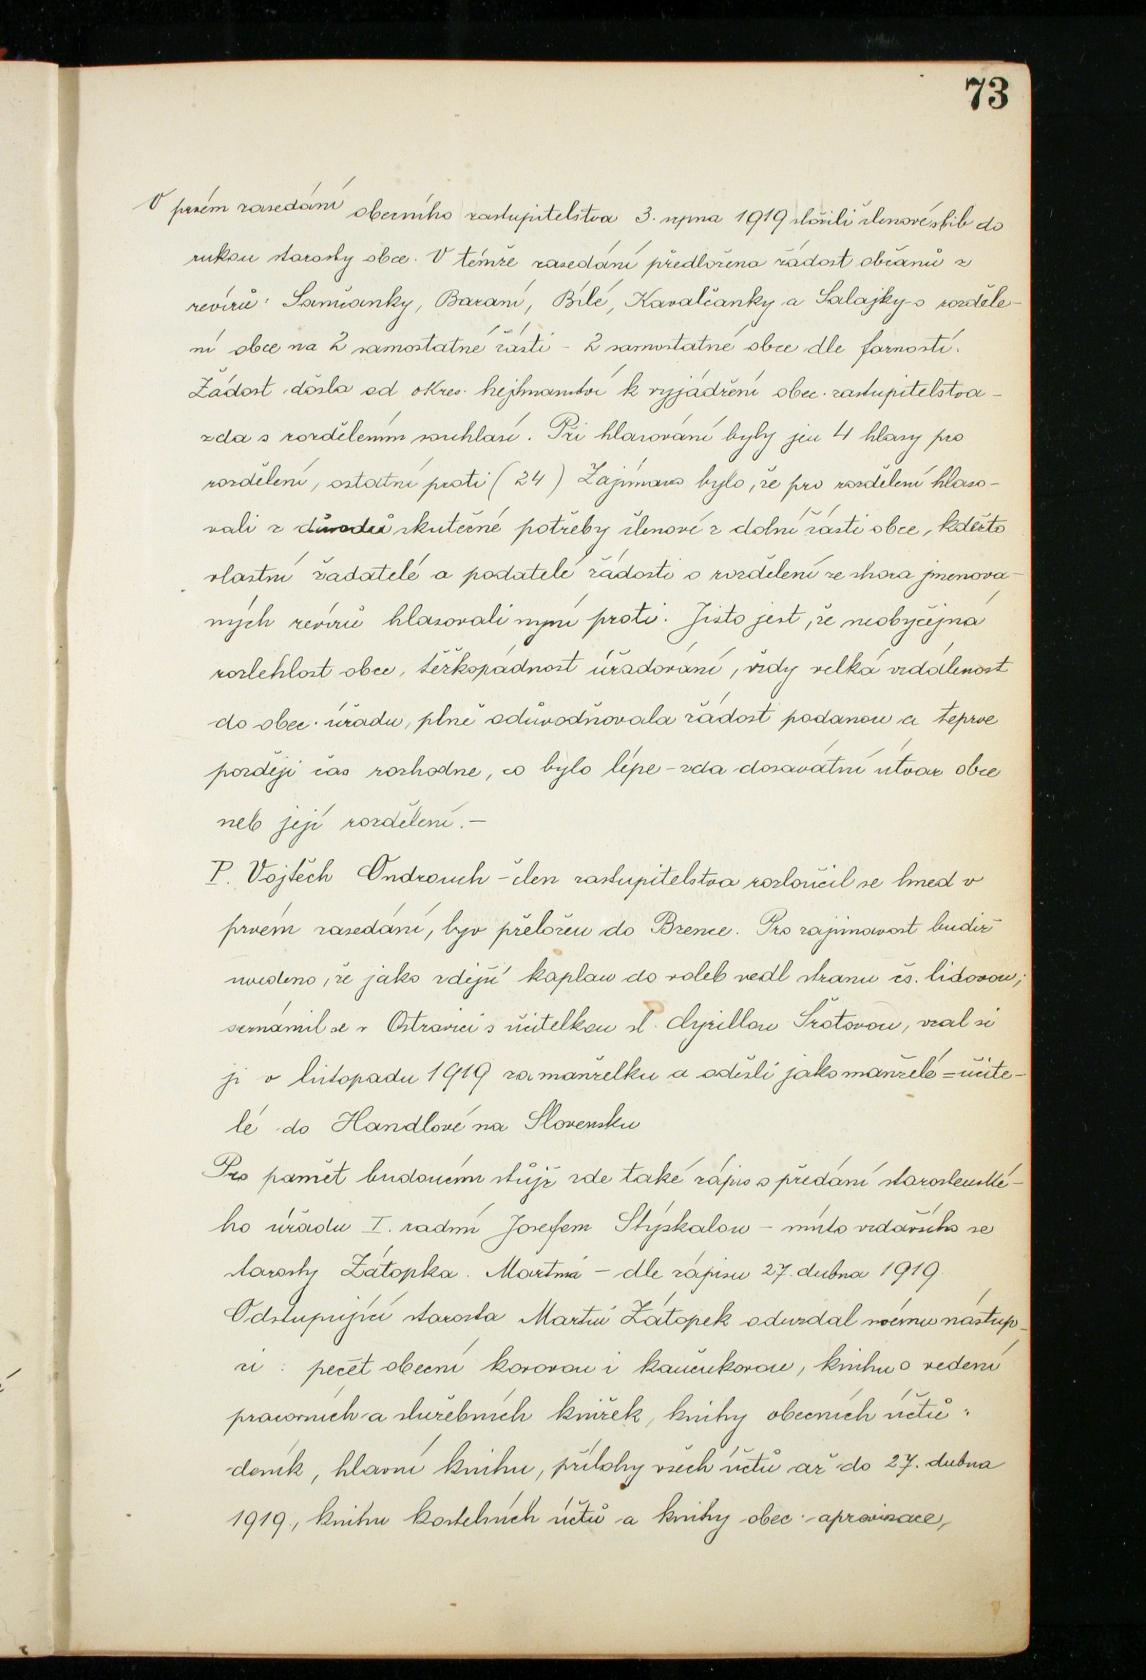 73
V prvém zasedání obecního zastupitelstva 3. srpna 1919 složili členové slib do
rukou starosty obce. V témže zasedání předložena žádost občanů z
revírů: Samčanky, Baraní, Bílé, Kavalčanky a Salajky o rozděle-
ní obce na 2 samostatné části - 2 samostatné obce dle farností.
Žádost došla od okres. hejtmanství k vyjádření obec. zastupitelstva -
zda s rozdělením souhlasí. Při hlasování byly jen 4 hlasy pro
rozdělení, ostatní proti (24) Zajímavo bylo, že pro rozdělení hlaso-
vali z důvodů skutečné potřeby členové z dolní části obce, kdežto
vlastní žadatelé a podatelé žádosti o rozdělení ze shora jmenova-
ných revírů hlasovali nyní proti. Jisto jest, že neobyčejná
rozlehlost obce, těžkopádnost úřadování, vždy velká vzdálenost
do obec. úřadu, plně odůvodňovala žádost podanou a teprve
později čas rozhodne, co bylo lépe - zda dosavátní útvar obce
neb její rozdělení. -
P. Vojtěch Ondrouch - člen zastupitelstva rozloučil se hned v
prvém zasedání, byv přeložen do Bzence. Pro zajímavost budiž
uvedeno, že jako zdejší kaplan do voleb vedl stranu čs. lidovou;
seznámil se v Ostravici s učitelkou sl. Cyrillou Šrotovou, vzal si
ji v listopadu 1919 za manželku a odešli jako manželé = učite-
lé do Handlové na Slovensku
Pro pamět budoucím stůjž zde také zápis o předání starostenské-
ho úřadu I. radní Josefem Stýskalou - místo vzdavšího se
starosty Zátopka Martina - dle zápisu 27. dubna 1919.
Odstupující starosta Martin Zátopek odevzdal svému nástup-
ci: pečeť obecní kovovou i kaučukovou, knihu o vedení
pracovních a služebních knížek, knihy obecních účtů:
deník, hlavní knihu, přílohy všech účtů až do 27. dubna
1919., knihu kostelních účtů a knihy obec. aprovisace,